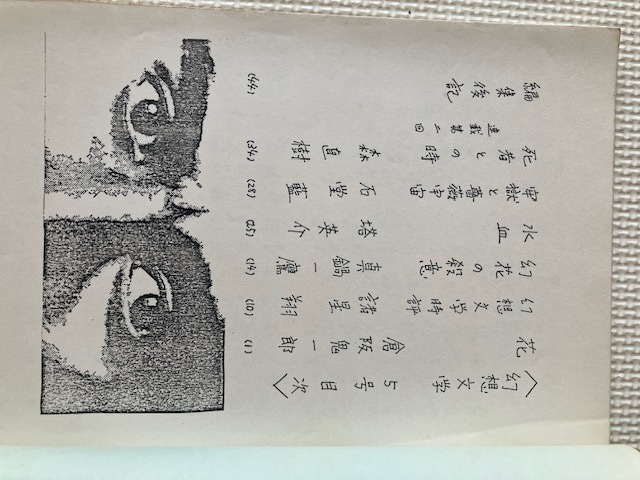 〈幻想文学 5号 目次〉
花 倉阪鬼一郎 (1)
幻想文学時評 諸星翔 (10)
幻花の殺意 真鍋一鷹 (14)
水血 塔英介 (25)
牢獄と薔薇宇宙 石堂藍 (28)
死者との時 森直樹 (36)
連載第二回
編集後記 (44)